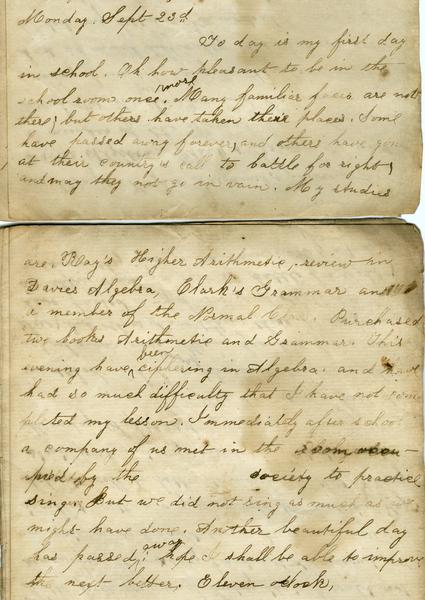 Monday. Sept 23d
To day is my first day
in school. Oh how pleasant to be in the
school room once more. Many familiar faces are not
there, but others have taken their places. Some
have passed away forever, and others have gone
at their country's call to battle for right,
and may they not go in vain. My studies
are Ray's Higher Arithmetic, review in
Davies Algebra, Clark's Grammar and
a member of the Normal Class. Purchased
two books Arithmetic and Grammar. This
evening have been ciphering in Algebra. and have
had so much difficulty that I have not com
pleted my lesson. Immediately after school
a company of us met in the room occu-
pied by the society to practice
singing. But we did not sing as much as we
might have done. Another beautiful day
has passed away, hope I shall be able to improve
the next better. Eleven o'clock,